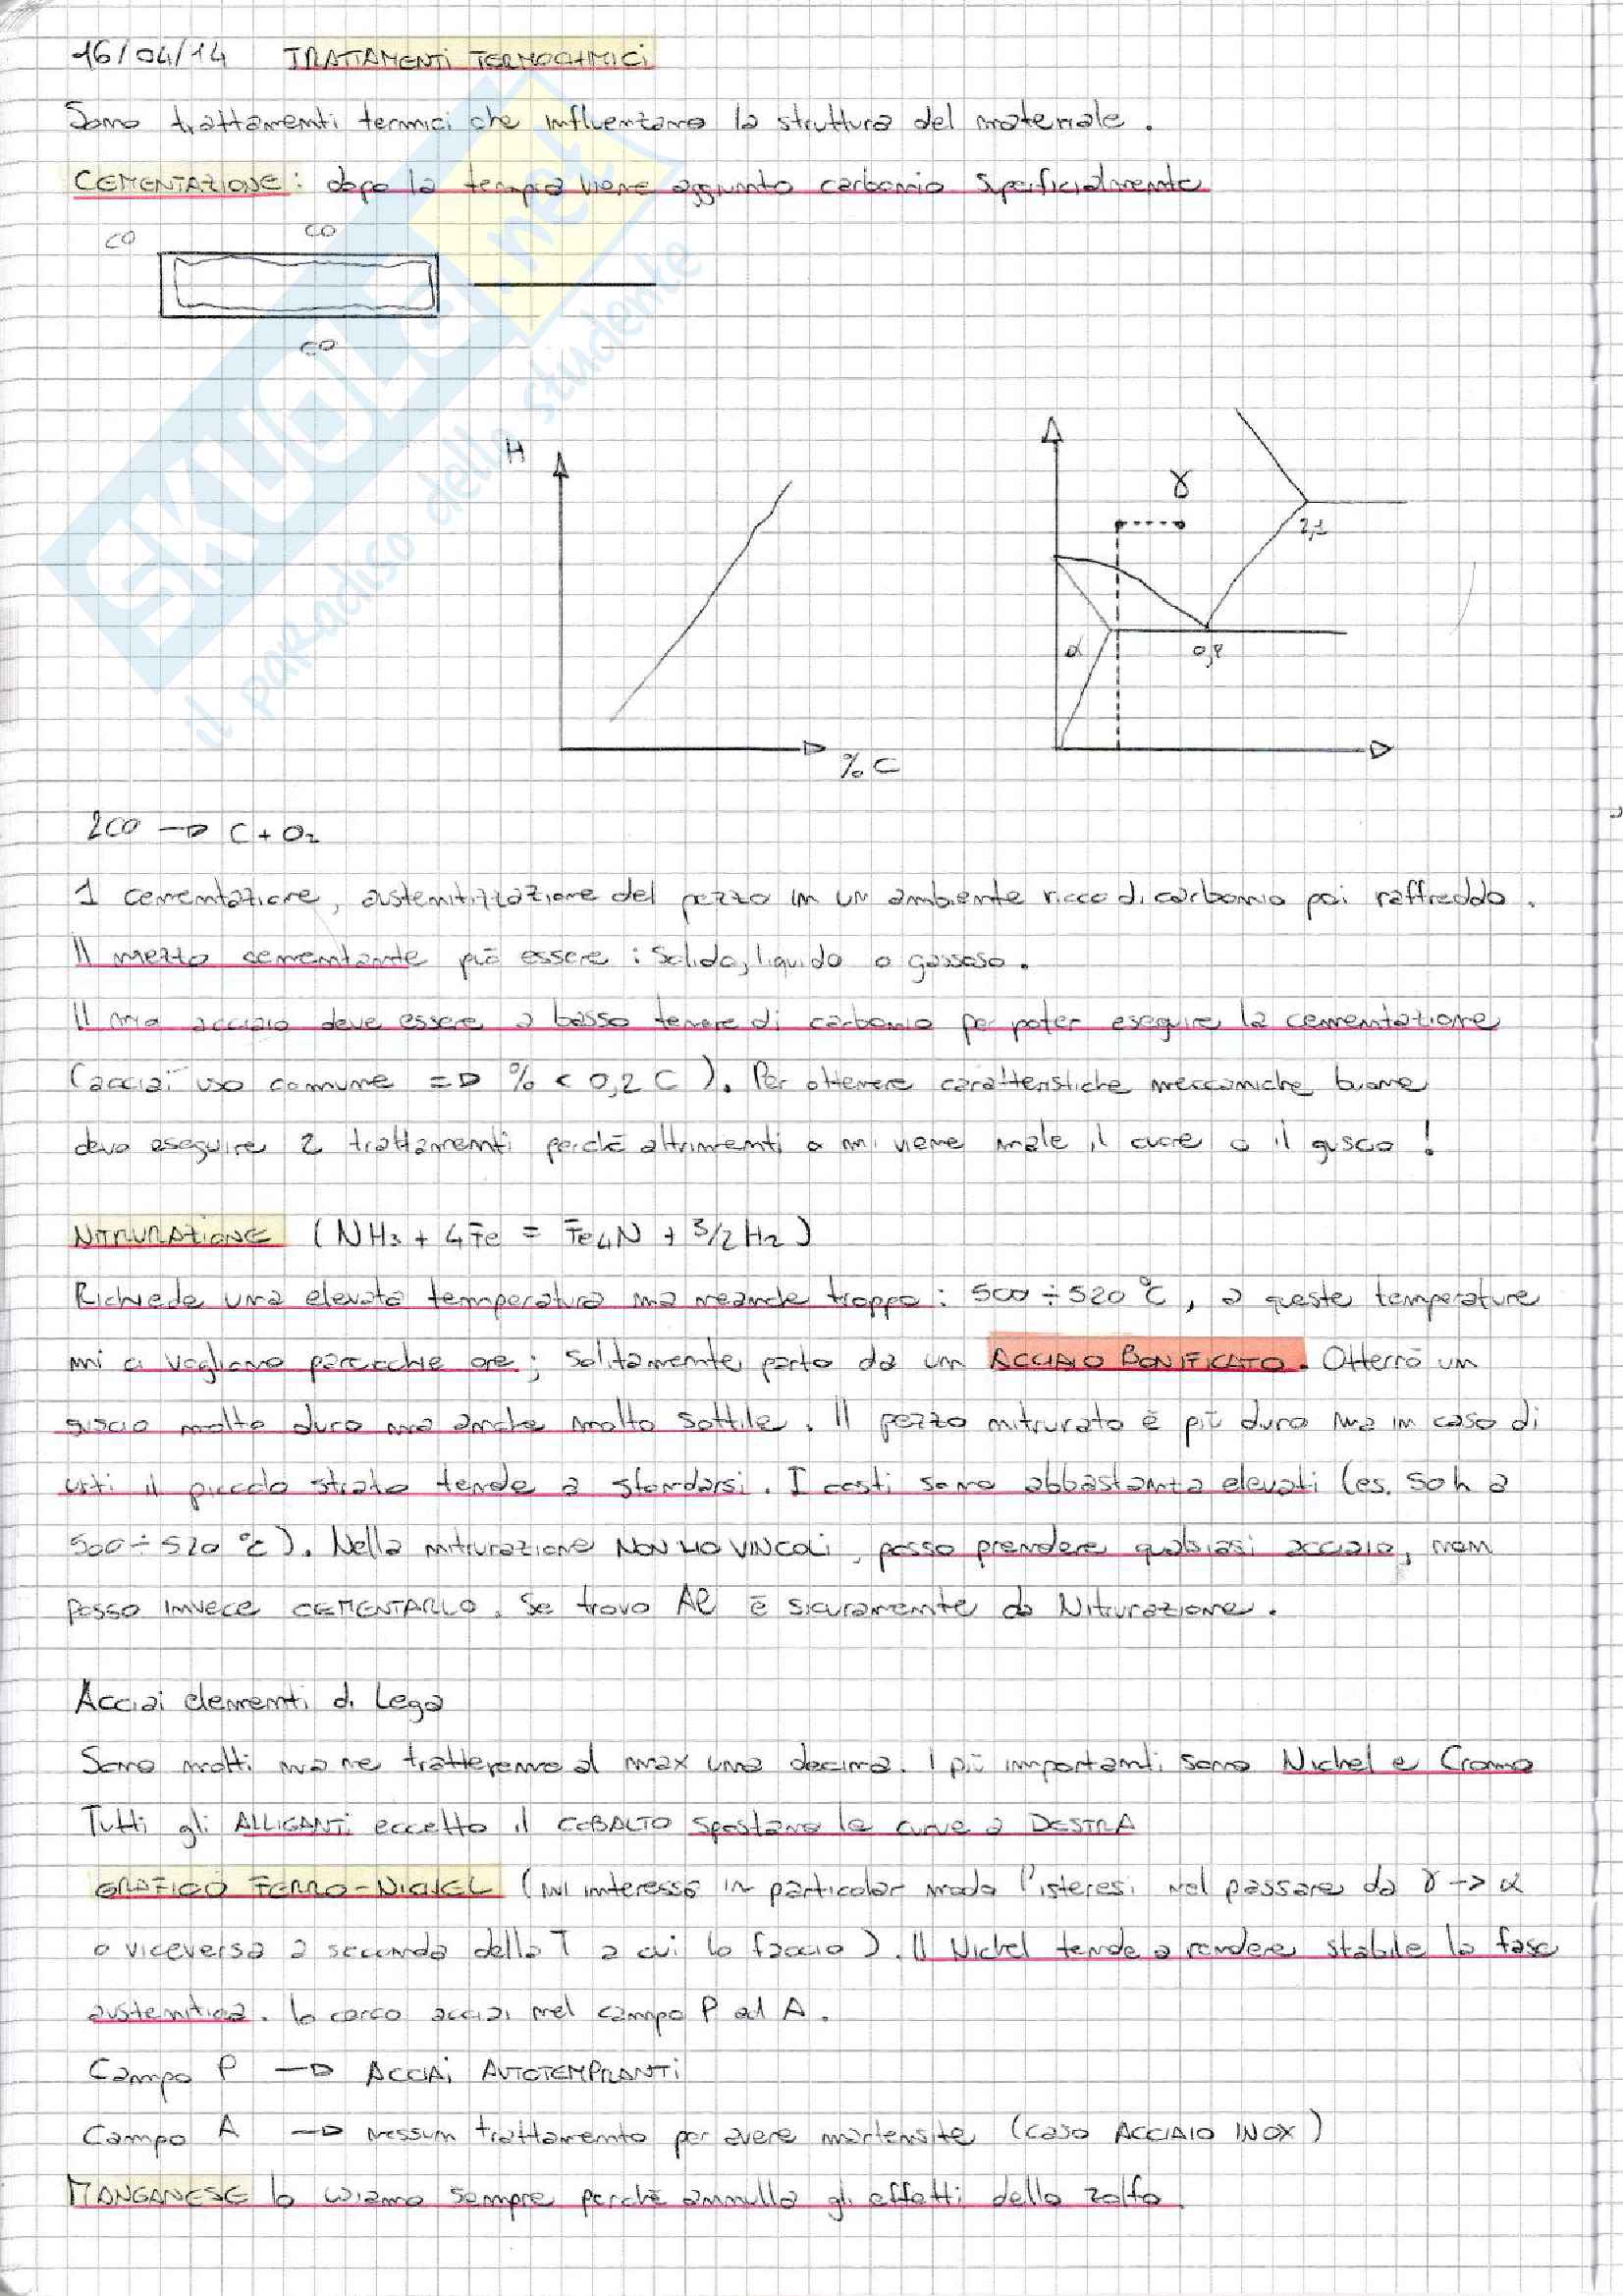 16/04/14 TRATTAMENTI TERMOCHIMICI
Sono trattamenti termici che influenzano la struttura del materiale.
CEMENTAZIONE: dopo la tempra viene aggiunto carbonio superficialmente
CO CO
CO
H
γ
2,1
α
0,8
% C
2CO → C + O₂
1 cementazione, austenitizzazione del pezzo in un ambiente ricco di carbonio poi raffreddo.
Il mezzo cementante può essere: Solido, liquido o gassoso.
Il mio acciaio deve essere a basso tenore di carbonio per poter eseguire la cementazione
(acciai uso comune => % < 0,2 C). Per ottenere caratteristiche meccaniche buone
devo eseguire 2 trattamenti perchè altrimenti o mi viene male il cuore o il guscio!
NITRURAZIONE (NH₃ + 4Fe = Fe₄N + 3/2H₂)
Richiede una elevata temperatura ma neanche troppo: 500÷520 °C, a queste temperature
mi ci vogliono parecchie ore; solitamente parto da un ACCIAIO BONIFICATO. Otterrò un
guscio molto duro ma anche molto sottile. Il pezzo nitrurato è più duro ma in caso di
urti il piccolo strato tende a sfondarsi. I costi sono abbastanza elevati (es. 50h a
500÷520 °C). Nella nitrurazione NON HO VINCOLI, posso prendere qualsiasi acciaio, non
posso invece CEMENTARLO. Se trovo Al è sicuramente da Nitrurazione.
Acciai elementi di Lega
Sono molti ma ne tratteremo al max una decina. I più importanti sono Nichel e Cromo
Tutti gli ALLIGANTI eccetto il COBALTO spostano le curve a DESTRA
GRAFICO FERRO-NICHEL (mi interessa in particolar modo l'isteresi nel passare da γ → α
o viceversa a seconda della T a cui lo faccio). Il Nichel tende a rendere stabile la fase
austenitica. Io cerco acciai nel campo P ed A.
Campo P → ACCIAI AUTOTEMPRANTI
Campo A → nessun trattamento per avere martensite (caso ACCIAIO INOX)
MANGANESE lo usiamo sempre perchè annulla gli effetti dello zolfo.
SKUOLA.net
il paradiso dello studente